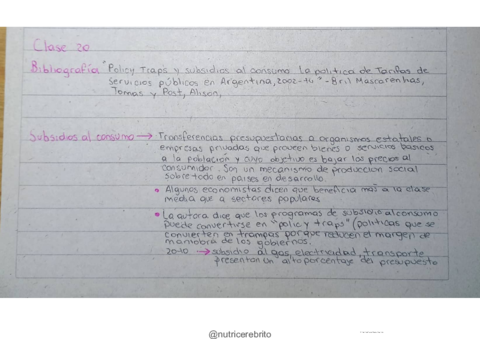 Clase 20
Bibliografía "Policy Traps y subsidios al consumo la política de Tarifas de
Servicios públicos en Argentina, 2002-14" - Bril Mascarenhas,
Tomas y Post, Alison,
Subsidios al consumo → Transferencias presupuestarias a organismos estatales o
empresas privadas que proveen bienes o servicios basicos
a la población y cuyo objetivo es bajar los precios al
consumidor. Son un mecanismo de produccion social
sobre todo en paises en desarrollo.
• Algunos economistas dicen que beneficia mas a la clase
media que a sectores populares
• La autora dice que los programas de subsidio al consumo
puede convertirse en "policy traps" (politicas que se
convierten en trampas porque reducen el margen de
maniobra de los gobiernos.
2010 → subsidio al gas, electricidad, transporte
presentan un alto porcentaje del presupuesto
@nutricerebrito